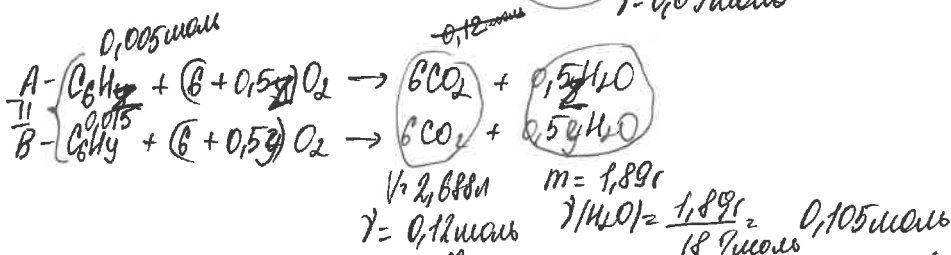 0,005моль
0,12моль
A - C₆Hy + (6 + 0,5y)O₂ → 6CO₂ + 0,5yH₂O
II
0,015
B - C₆Hy + (6 + 0,5y)O₂ → 6CO₂ + 0,5yH₂O
V = 2,688л m = 1,89г
γ = 0,12моль γ(H₂O) = 1,89г / 18 г/моль = 0,105моль